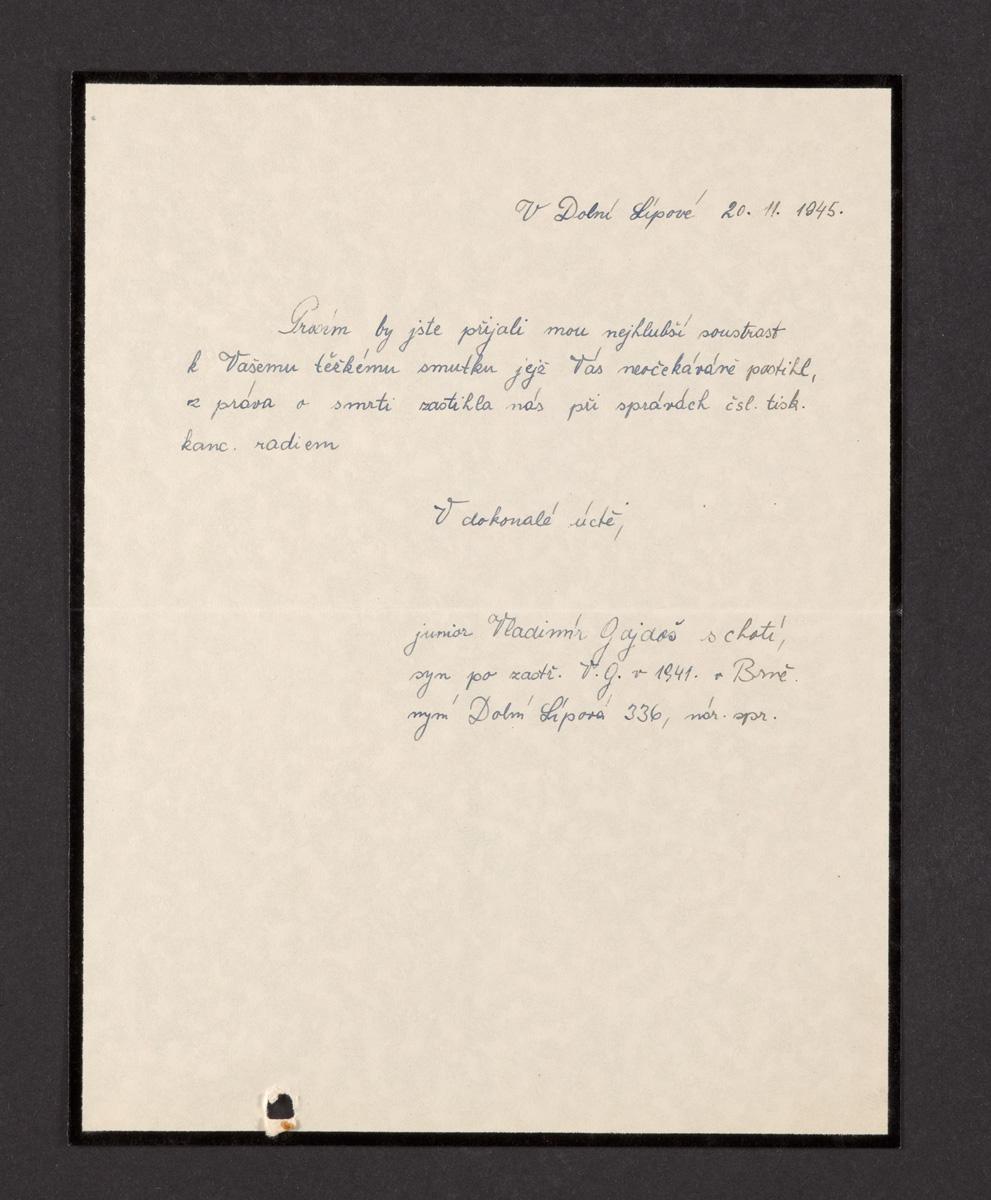 V Dolní Lípové 20. 11. 1945.
Prosím by jste přijali mou nejhlubší soustrast
k Vašemu těžkému smutku jejž Vás neočekáváně postihl,
z práva o smrti zastihla nás při správách čsl. tisk.
kanc. radiem
V dokonalé úctě,
junior Vladimír Gajdoš s chotí,
syn po zastř. V. G. v 1941. v Brně.
nyní Dolní Lípová 336, nár. spr.